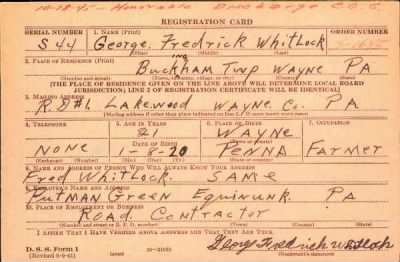 10-18-45 - Honorable Discharge
REGISTRATION CARD
SERIAL NUMBER 1. NAME (Print) ORDER NUMBER
S 44 George Fredrick Whitlock
2. PLACE OF RESIDENCE (Print)
ing
Buckham Twp Wayne PA
[THE PLACE OF RESIDENCE GIVEN ON THE LINE ABOVE WILL DETERMINE LOCAL BOARD
JURISDICTION; LINE 2 OF REGISTRATION CERTIFICATE WILL BE IDENTICAL]
3. MAILING ADDRESS
R.D#1 Lakewood Wayne Co. PA
[Mailing address if other than place indicated on line 2. If same insert word same]
4. TELEPHONE 5. AGE IN YEARS 6. PLACE OF BIRTH 7. OCCUPATION
21 Wayne
DATE OF BIRTH
None 1-8-20 Penna Farmer
8. NAME AND ADDRESS OF PERSON WHO WILL ALWAYS KNOW YOUR ADDRESS
Fred Whitlock. Same
9. EMPLOYER'S NAME AND ADDRESS
Putman Green Equinunk. PA
10. PLACE OF EMPLOYMENT OR BUSINESS
Road Contractor
I AFFIRM THAT I HAVE VERIFIED ABOVE ANSWERS AND THAT THEY ARE TRUE.
D. S. S. Form 1 George Fredrick Whitlock
(Revised 6-9-41)